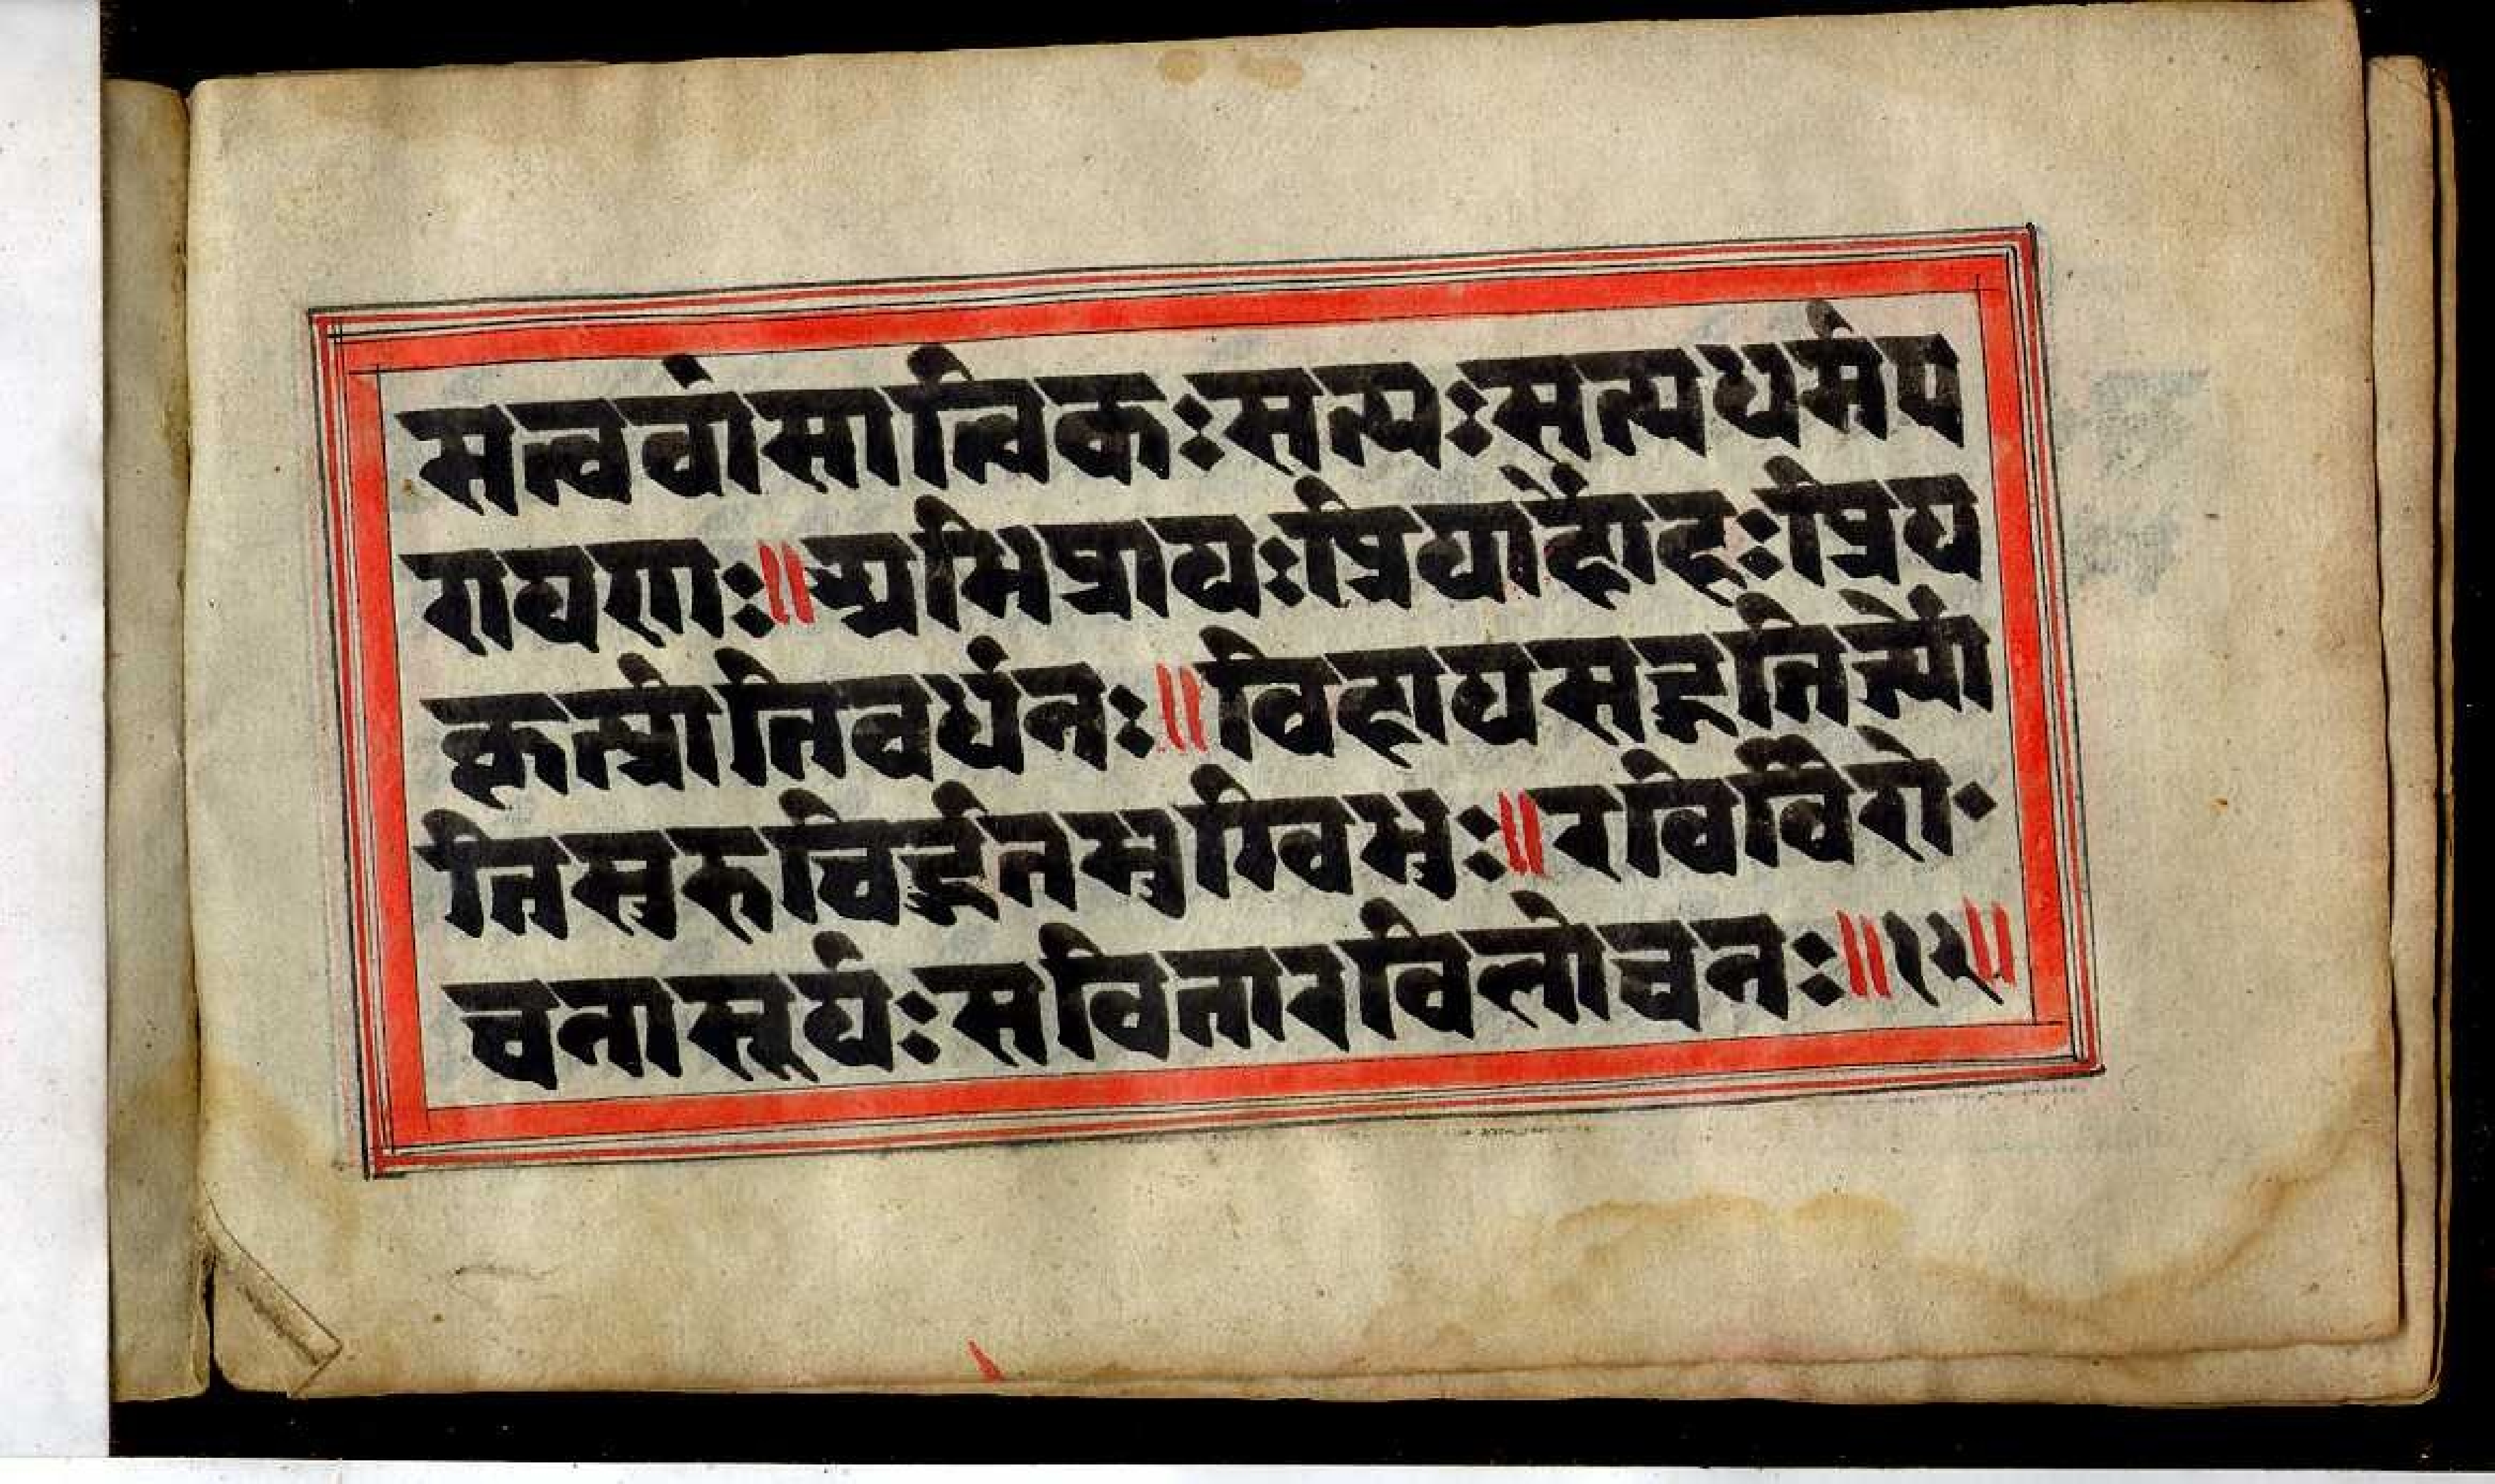 सत्ववांसात्विकःसत्यःसत्यधर्मप
रायणः॥अभिप्रायःप्रियार्होर्हःप्रिय
कृत्प्रीतिवर्धनः॥विहायसगतिर्ज्यो
तिसरुचिर्हुतभुग्विभुः॥रविर्विरो॰
चनासूर्यःसवितारविलोचनः॥१२॥